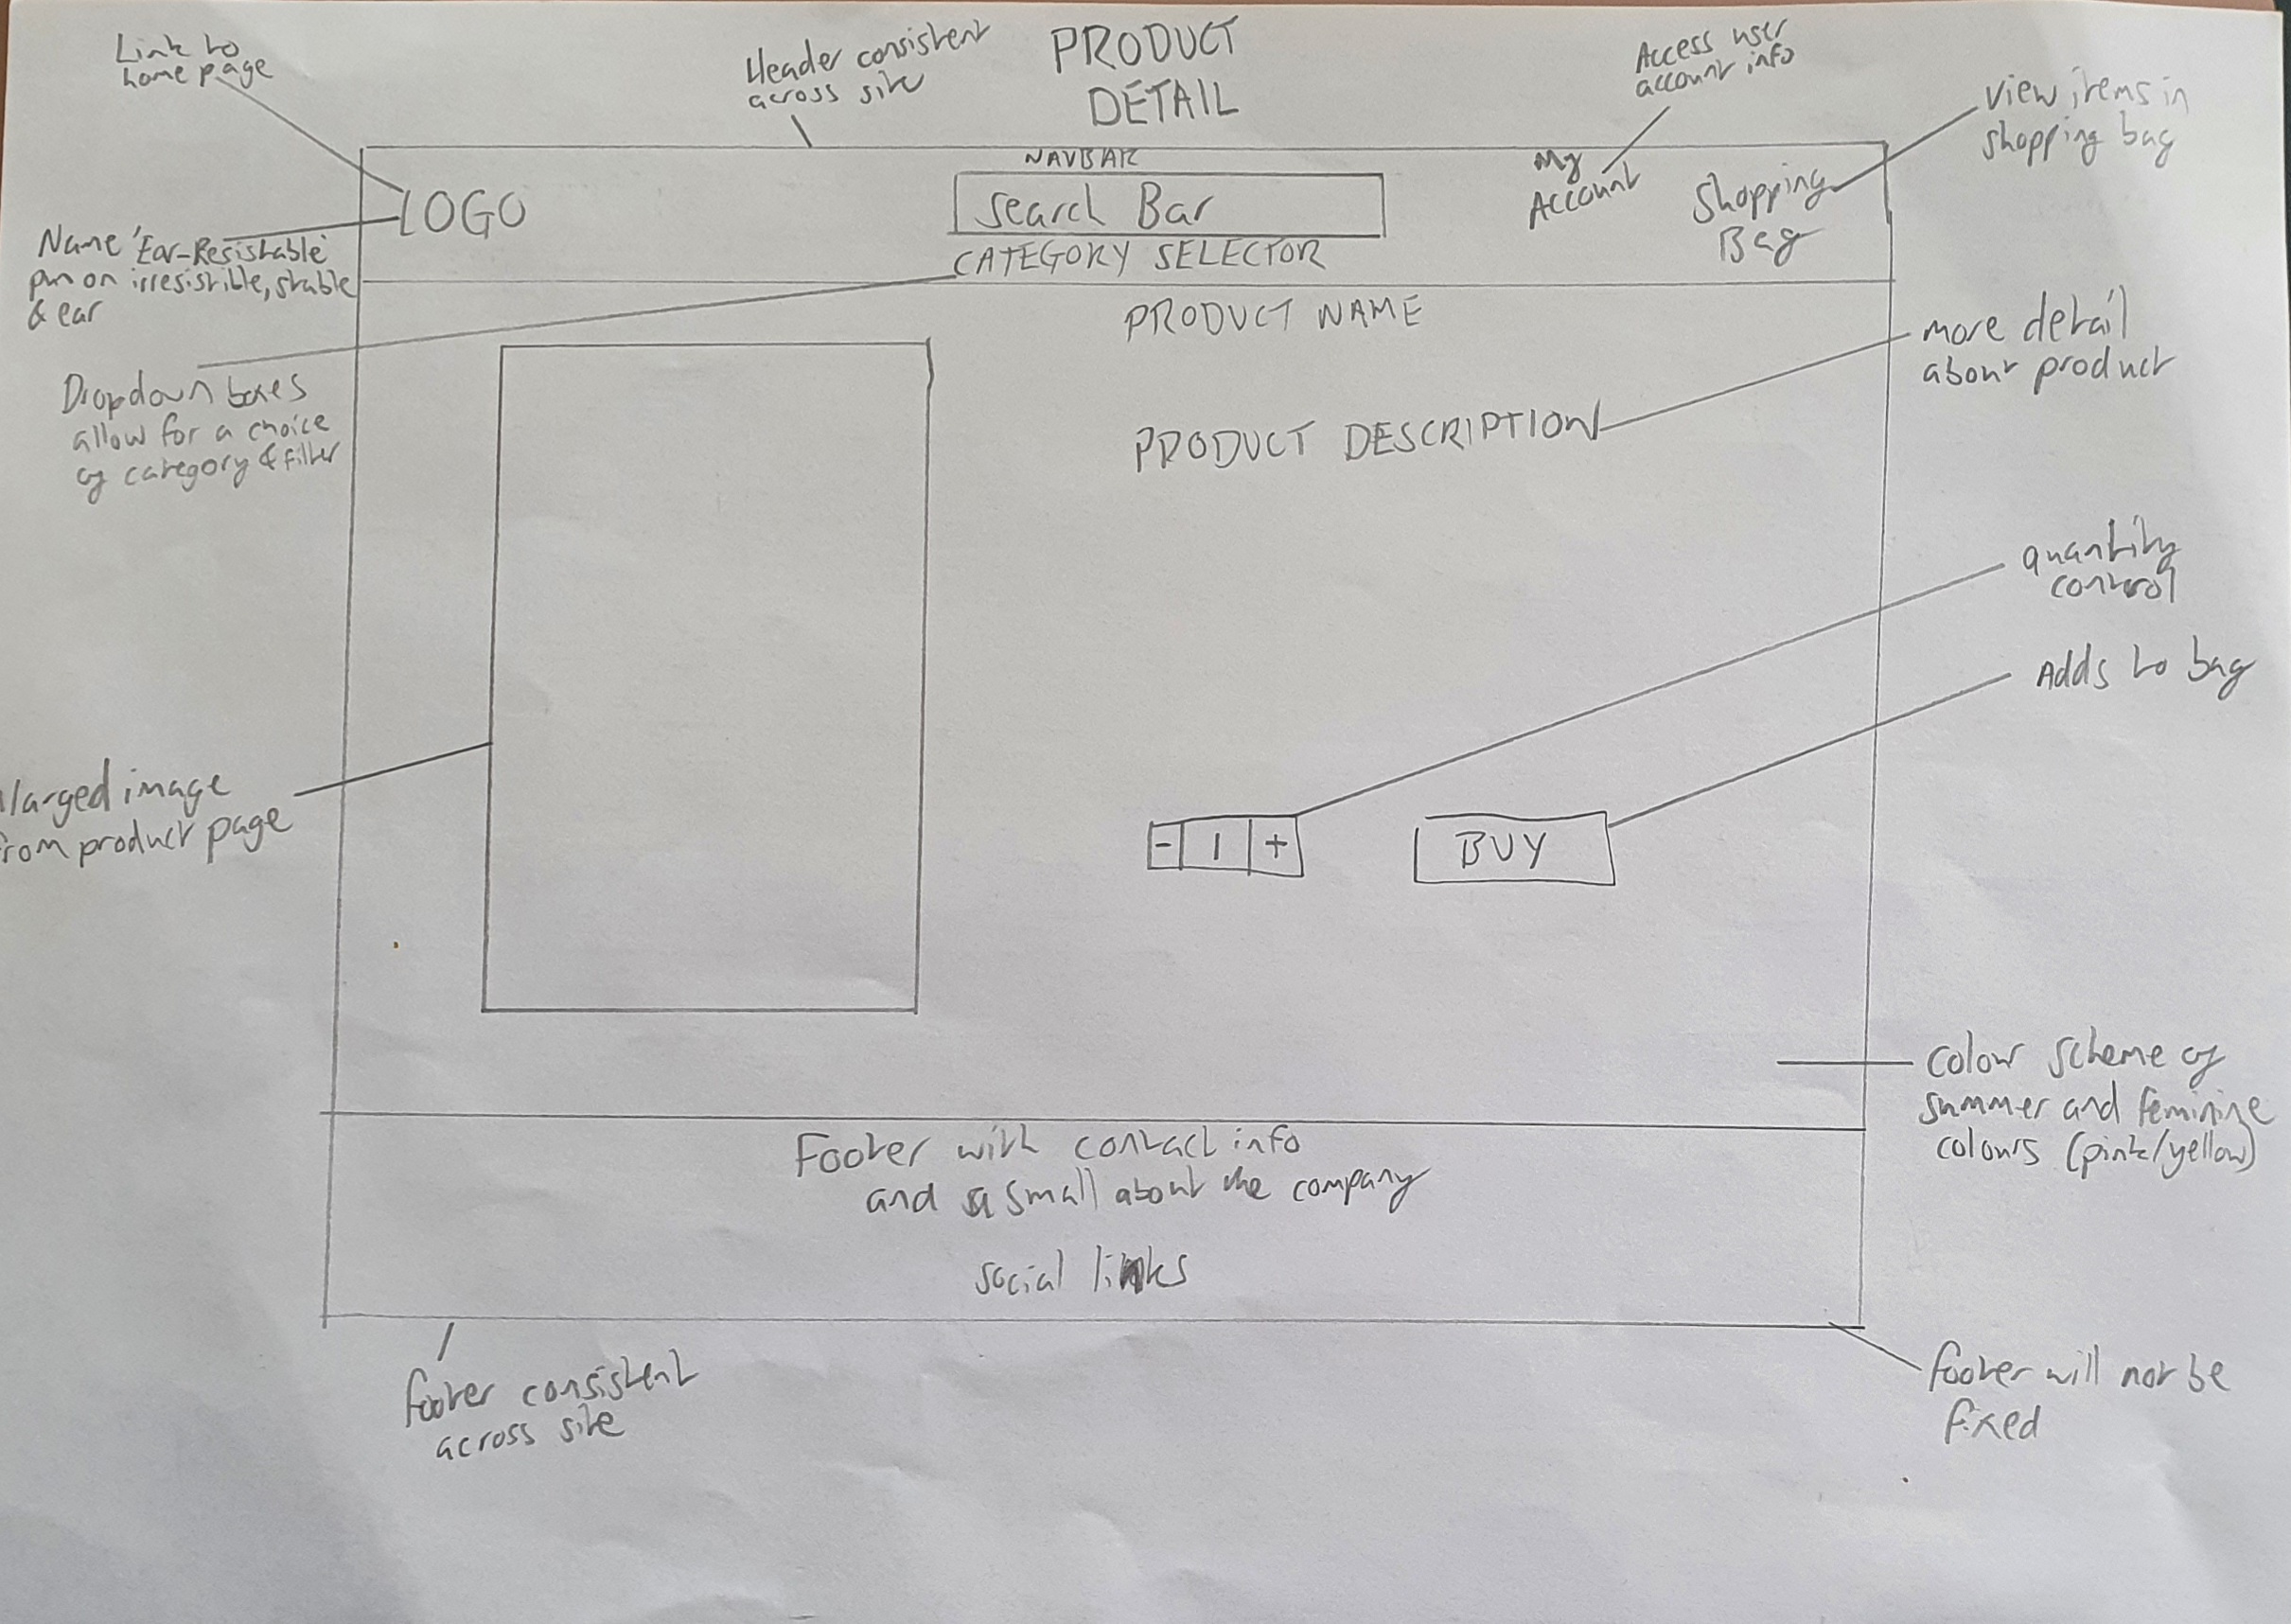 PRODUCT
DETAIL
Link to
home page
Header consistent
across site
Access user
account info
View items in
shopping bag
NAVBAR
LOGO
Search Bar
My
Account
Shopping
Bag
CATEGORY SELECTOR
Name 'Ear-Resistable'
pun on irresistible, stable
& ear
PRODUCT NAME
more detail
about product
Dropdown boxes
allow for a choice
of category & filter
PRODUCT DESCRIPTION
quantity
control
Adds to bag
larged image
from product page
- 1 +
BUY
Colour scheme of
summer and feminine
colours (pink/yellow)
Footer with contact info
and a small about the company
social links
footer consistent
across site
footer will not be
fixed